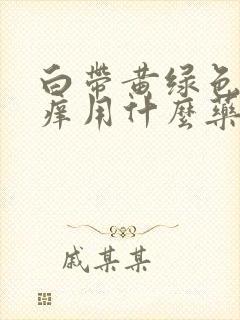 白带黄绿色
痒用什麼藥
戚某某